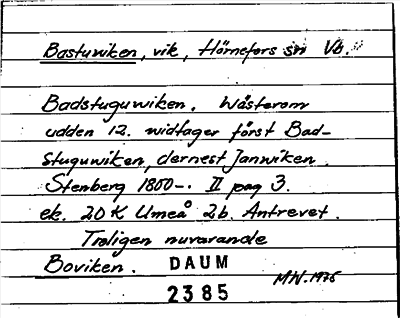 Bastuviken, vik, Hörnefors sn Vb.
Badstuguwiken. Wästerom
udden 12. widtager först Bad-
stuguwiken, dernest Janwiken.
Stenberg 1800-. II pag 3.
ek. 20 K Umeå 2b. Antrevet.
Troligen nuvarande
Boviken. DAUM
MW. 1976
2385